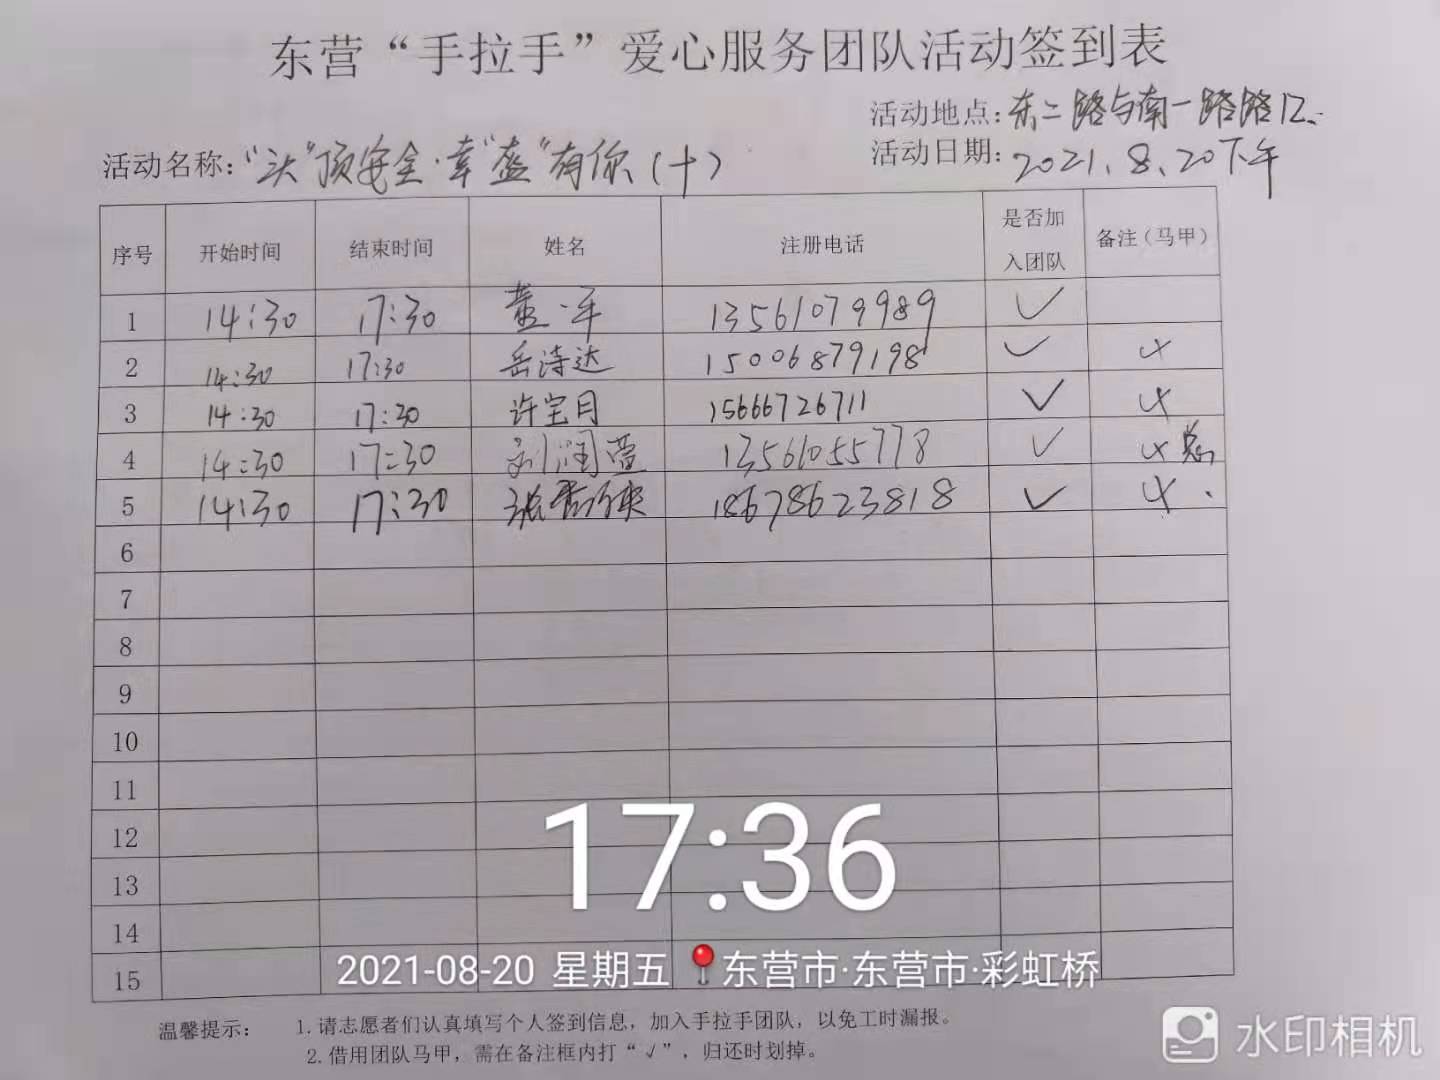 东营“手拉手”爱心服务团队活动签到表
活动地点：东二路与南一路路口
活动名称：“头”顶安全·幸“盔”有你（十）
活动日期：2021.8.20下午
序号 开始时间 结束时间 姓名 注册电话 是否加入团队 备注（马甲）
1 14:30 17:30 13561079989 ✓
2 14:30 17:30 岳涛达 15006879198 ✓
3 14:30 17:30 许宝月 15666726711 ✓
4 14:30 17:30 刘润萱 13561055778 ✓
5 14:30 17:30 18678623818 ✓
6
7
8
9
10
11
12
13
14
15
17:36
2021-08-20 星期五 东营市·东营市·彩虹桥
温馨提示： 1.请志愿者们认真填写个人签到信息，加入手拉手团队，以免工时漏报。
2.借用团队马甲，需在备注框内打“√”，归还时划掉。
水印相机